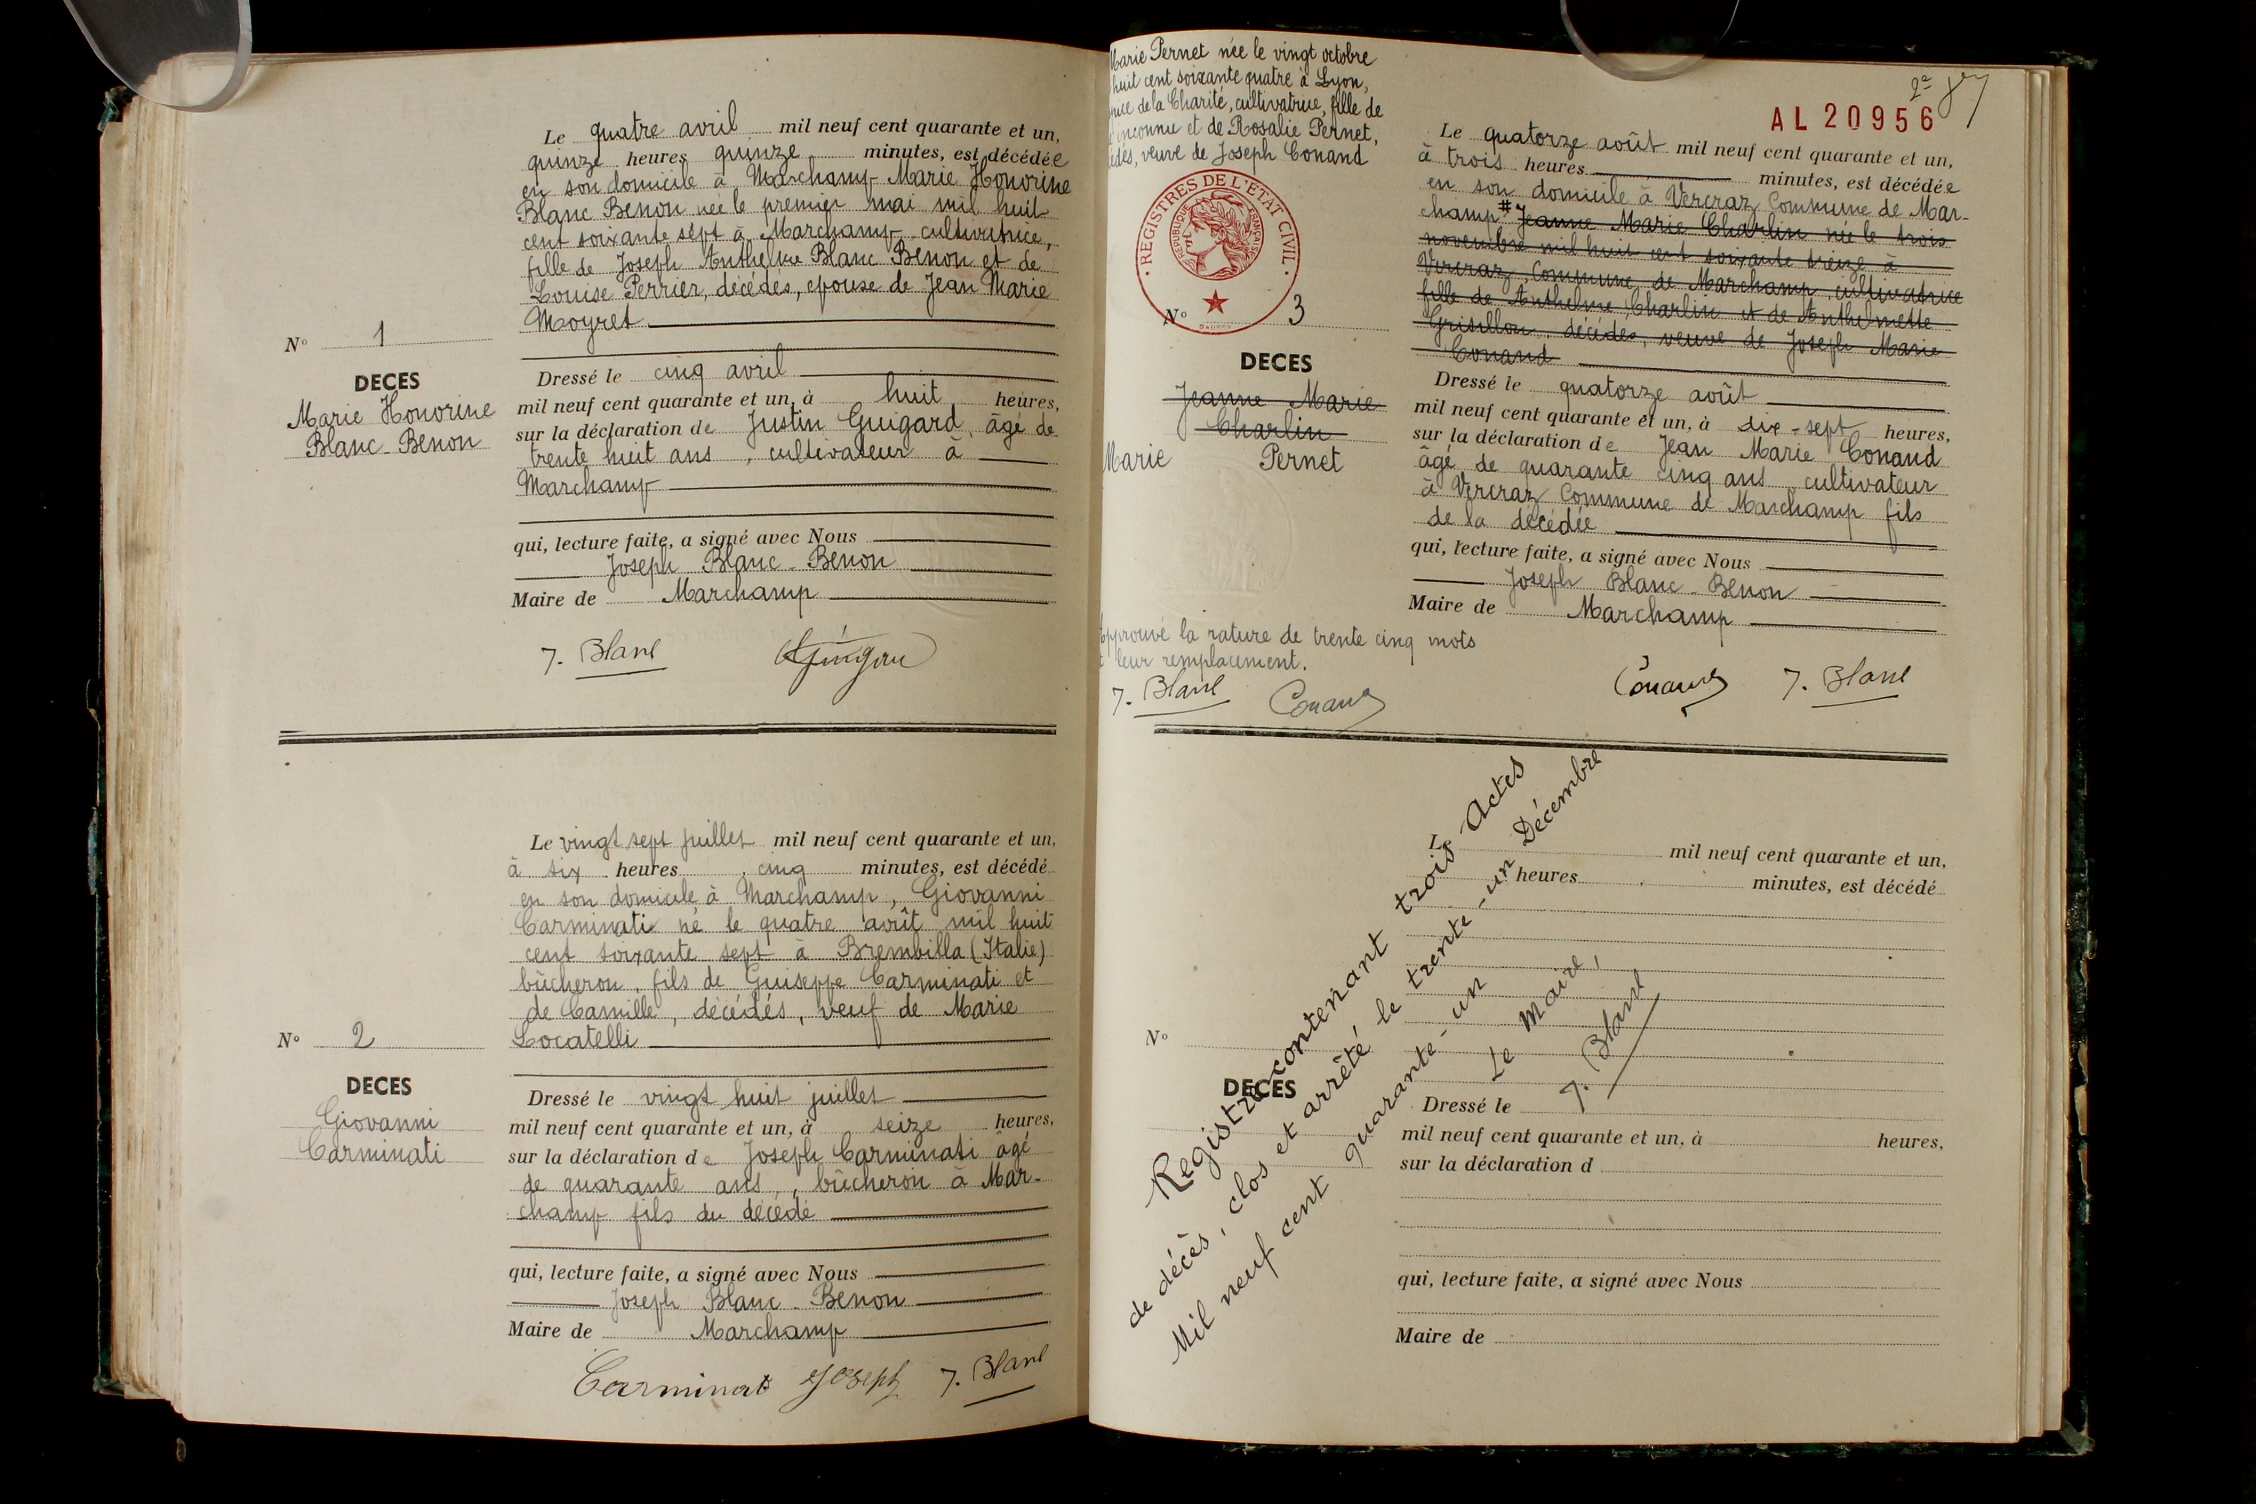 Le quatre avril mil neuf cent quarante et un,
quinze heures quinze minutes, est décédée
en son domicile à Marchamp Marie Honorine
Blanc Benon née le premier mai mil huit
cent soixante sept à Marchamp cultivatrice,
fille de Joseph Anthelme Blanc Benon et de
Louise Perrier, décédés, épouse de Jean Marie
Moyret
N° 1
DECES
Marie Honorine
Blanc-Benon
Dressé le cinq avril
mil neuf cent quarante et un, à huit heures,
sur la déclaration de Justin Guigard, âgé de
trente huit ans, cultivateur à
Marchamp
qui, lecture faite, a signé avec Nous
Joseph Blanc-Benon
Maire de Marchamp
J. Blanc
Le vingt sept juillet mil neuf cent quarante et un,
à six heures cinq minutes, est décédé
en son domicile à Marchamp, Giovanni
Carminati né le quatre août mil huit
cent soixante sept à Brembilla (Italie)
bûcheron, fils de Guiseppe Carminati et
de Camille, décédés, veuf de Marie
Locatelli
N° 2
DECES
Giovanni
Carminati
Dressé le vingt huit juillet
mil neuf cent quarante et un, à seize heures,
sur la déclaration de Joseph Carminati âgé
de quarante ans, bûcheron à Mar-
champ fils du décédé
qui, lecture faite, a signé avec Nous
Joseph Blanc-Benon
Maire de Marchamp
Carminati Joseph J. Blanc
Marie Pernet née le vingt octobre
huit cent soixante quatre à Lyon,
de la Charité, cultivatrice, fille de
inconnu et de Rosalie Pernet,
veuve de Joseph Conand
REGISTRES DE L'ETAT CIVIL
REPUBLIQUE FRANÇAISE
N° 3
DECES
Jeanne Marie
Charlin
Marie Pernet
2e
AL 20956
Le quatorze août mil neuf cent quarante et un,
à trois heures minutes, est décédée
en son domicile à Vercraz Commune de Mar-
champ # Jeanne Marie Charlin née le trois
novembre mil huit cent soixante treize à
Vercraz, Commune de Marchamp, cultivatrice
fille de Anthelme Charlin et de Anthelmette
Grisillon, décédés, veuve de Joseph Marie
Conand
Dressé le quatorze août
mil neuf cent quarante et un, à dix-sept heures,
sur la déclaration de Jean Marie Conand
âgé de quarante cinq ans cultivateur
à Vercraz Commune de Marchamp fils
de la décédée
qui, lecture faite, a signé avec Nous
Joseph Blanc-Benon
Maire de Marchamp
Approuvé la rature de trente cinq mots
leur remplacement.
J. Blanc Conand
Conand J. Blanc
Le mil neuf cent quarante et un,
heures minutes, est décédé
N°
DECES
Dressé le
mil neuf cent quarante et un, à heures,
sur la déclaration d
qui, lecture faite, a signé avec Nous
Maire de
Registre contenant trois Actes
de décès, clos et arrêté le trente-un Décembre
Mil neuf cent quarante-un
Le Maire,
J. Blanc